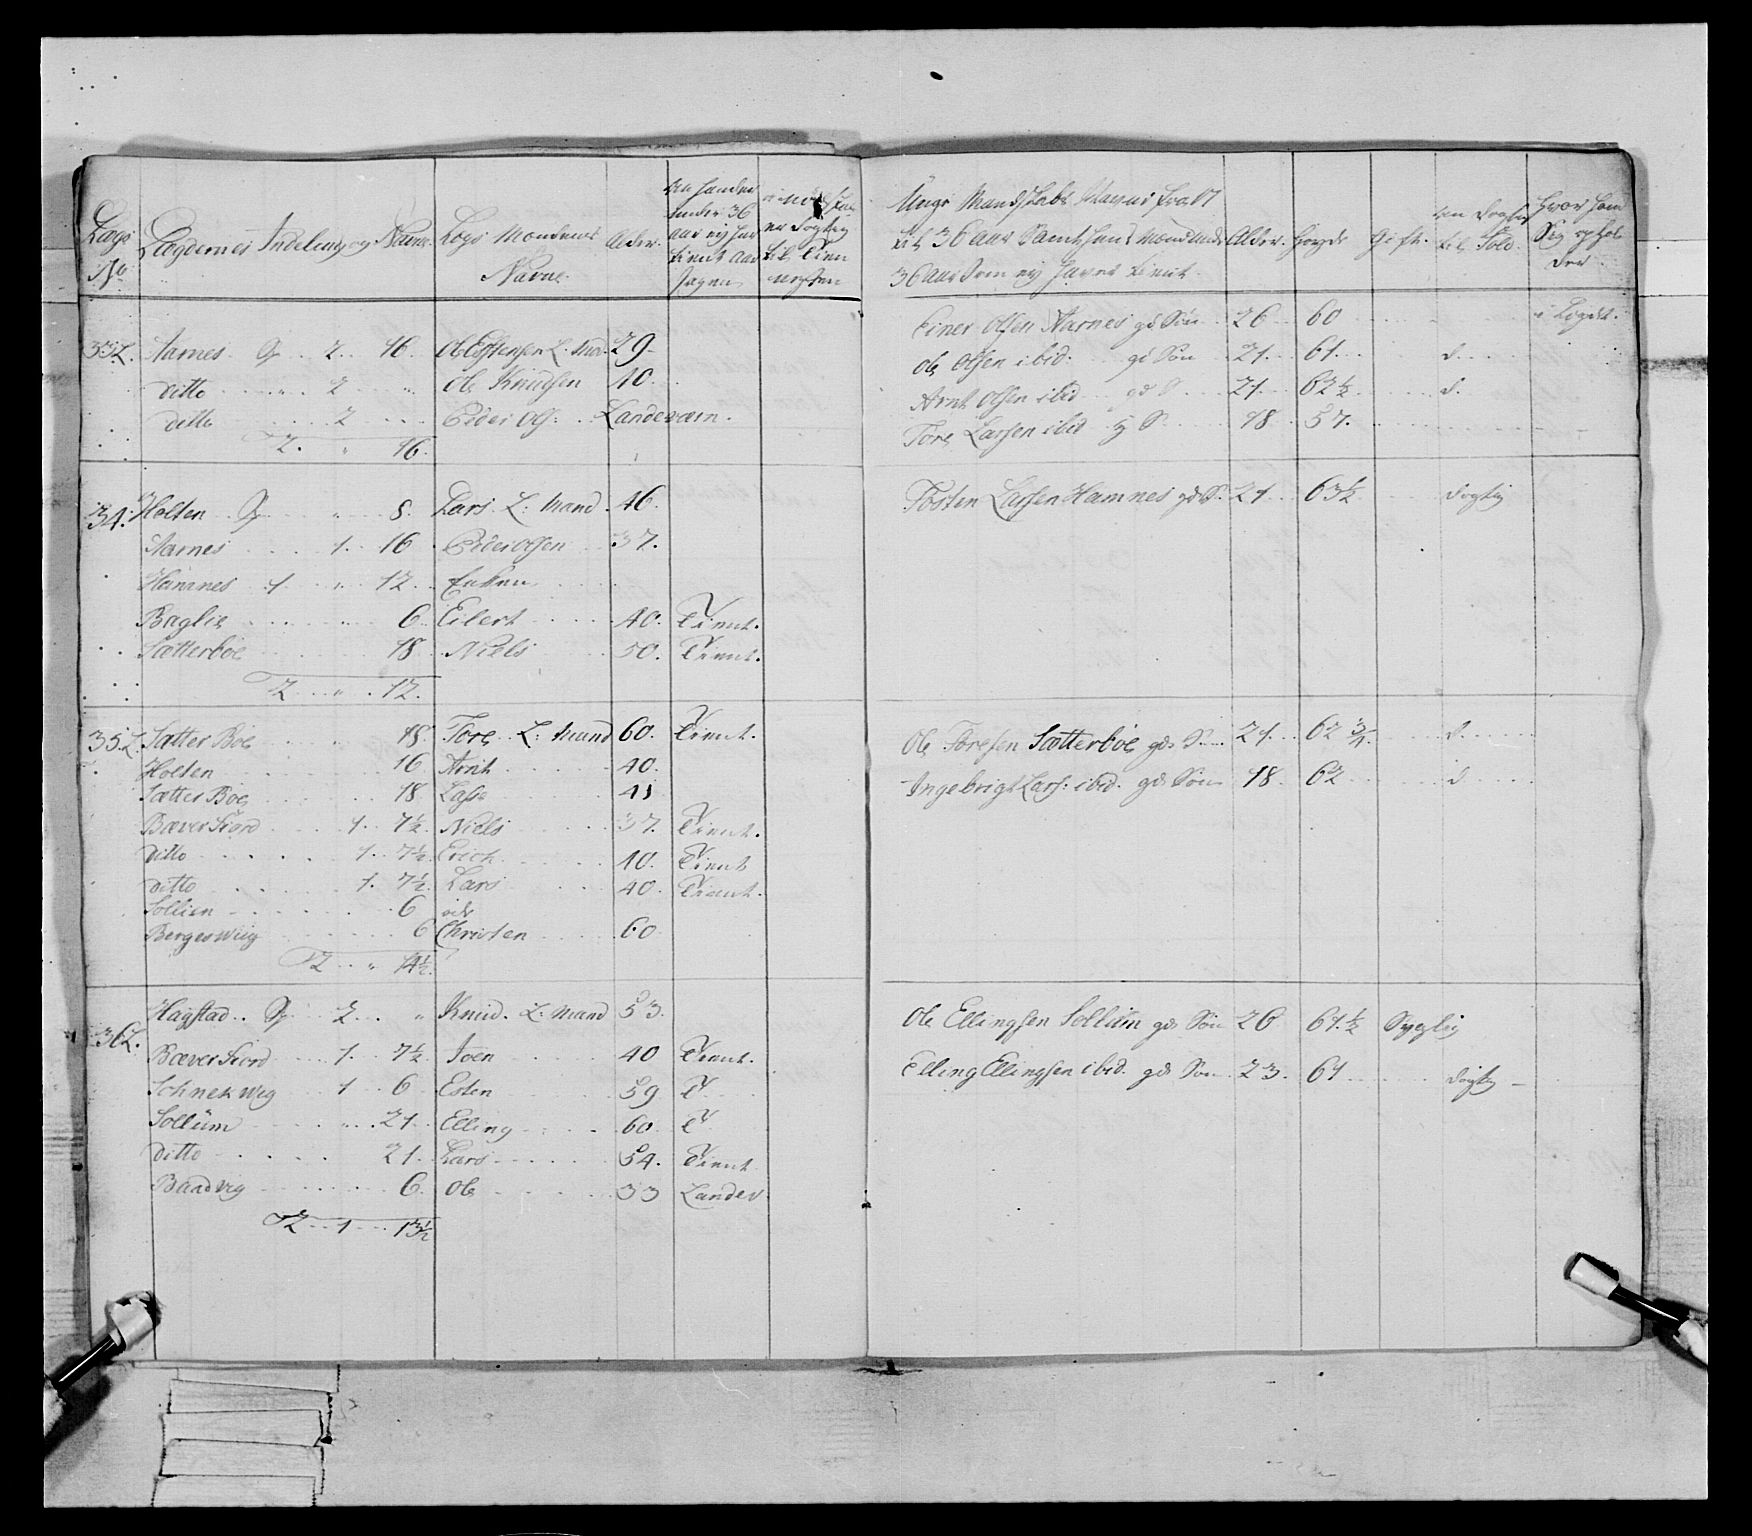 Lægs No
Lægdernes Indeling og Navne
Lægs Mændenes Navne
Alder
om handen under 36 Aar ey har tient Aar
er dogtig til Tien
33 L. Aarnes G 2 16 Ole Estensen L. Mand 29
ditto 2 Ole Knudsen 40
ditto 2 Peder Ols: Landeværn
2 " 16
34. Holten G " 8 Lars L: Mand 46
Aarnes 1 16 Peder Olsen 37
Hamnes 1 " 12 Enken
Baglie 6 Eilert 40 Tient.
Sætterboe 18 Niels 50. Tient.
2 " 12
35 L. Sætter Boe 18 Tore L: Mand 60. Tient.
Holten 16 Arnt 40
Sætter Boe 18 Lasse 41
Bæver Fiord 1 7½ Niels 37. Tient.
ditto 1 7½ Erich 40. Tient
ditto 1. 7½ Lars 40. Tient.
Sollien 6 öde
Berges Wiig 6 Christen 60
2 " 14½
36 L. Hagstad G 2 " Knud L: Mand 53
Bæver Fiord 1. 7½ Joen 40 Tient.
Schnek Wig 1 6 Esten 59 T
Sollüm 21 Elling 60 T
ditto 21. Lars 54. Tient
Bandvig 6. Ole 33 Landev
2 1 13½
Unge Mandskabs Navne fra 17
til 36 Aar Samt
36 Aar Som ey haver tient
Alder
Høyde
Gift
om dogtig til Sold
Hvor han Sig opholder
Einer Olsen Aarnes gds Søn 26 60 i Legdet.
Ole Olsen ibid. gds Søn 21 61 d.
Arnt Olsen ibid gds S 21 62½ d.
Tore Larsen ibid S 18 57.
Tosten Larsen Hamnes gds S. 21 63½ dogtig
Ole Toresen Sætterboe gds S. 21 62¾ d
Ingebrigt Lars: ibid. gds Søn 18 62 d
Ole Ellingsen Sollüm gds Søn 26 61½ Sygelig
Elling Ellingsen ibid. gds Søn 23. 61 dogtig